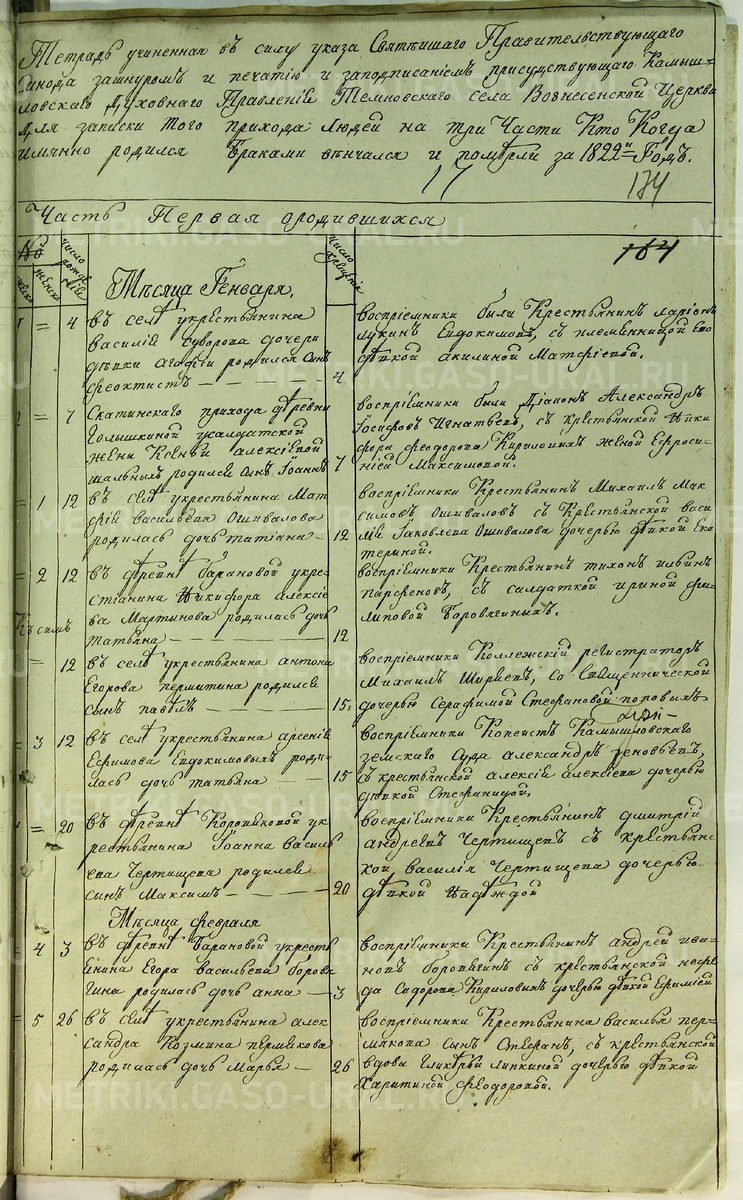 Тетрадь учиненная въ силу указа Святѣйшаго Правительствующаго
Синода зашнуромъ и печатію и заподписаніемъ присудствующаго Камыш-
ловскаго Духовнаго Правленія Темновскаго села Вознесенской Церкви
для записки того прихода людей на три Части Кто Когда
имянно родился Браками вѣнчался и помѣрли за 1822й Годъ.
17 174
Часть Первая ородившихся
184
№
число рожденіе
число крещеніе
женска
Мѣсяца Генваря.
= 4 въ селѣ укрестьянина
василія суворова дочери
дѣвки агафіи родился сынъ
феоктистъ — — — —
4
воспріемники были Крестьянинъ ларіонъ
лукинъ Евдокимовъ, съ племянницей ево
дѣвкой акилиной Матфіевой.
2 = 7 Скатинскаго прихода дѣревни
Голышкиной усалдатской
жены Ксеніи алексіевой
родился сынъ Іоаннъ
7
воспріемники были Діаконъ Александръ
Іосифовъ Игнатьевъ, съ крестьянской Ники
фора феодорова Кириловыхъ женой Ефроси-
ніей Максимовой.
= 1 12 въ селѣ укрестьянина Мат
фія васильева Ошивалова
родилась дочь татіана —
12
воспріемники Крестьянинъ Михаилъ Мак
симовъ Ошиваловъ съ Крестьянской васи
лія Іаковлева Ошивалова дочерью дѣвкой Ека
териной.
= 2 12 въ дѣревнѣ Барановой укре-
стіанина Никифора алексіе
ва Мартынова родилась дочь
татьяна — — — — —
12
воспріемники Крестьянинъ тихонъ ильинъ
парфеновъ, съ салдаткой ириной фи-
липовой Боровягиныхъ.
Къ симъ
= 12 въ селѣ укрестьянина антона
Егорова пермитина родился
сынъ павелъ — — — —
15
воспріемники Коллежскій регистраторъ
Михаилъ Ширяевъ, со Священнической
дочерью Серафимой Стефановой поповыхъ
= 3 12 въ селѣ укрестьянина арсенія
Ефимова Евдокимовыхъ роди-
лась дочь татьяна — —
15
воспріемники Копеистъ Камышловскаго
земскаго Суда александръ зеновьевъ,
съ крестьянской алексія алексіева дочерью
дѣвкой Стефанидой.
= 20 въ дѣревнѣ Коровяковой ук
рестьянина Іоанна василь
ева Чертищева родился
сынъ Максимъ — —
20
воспріемники Крестьянинъ дмитрій
андреевъ Чертищевъ съ крестьянс
кой василія Чертищева дочерью
дѣвкой надѣждой
Мѣсяца февраля
= 4 3 въ дѣревнѣ Барановой укресть
янина Егора васильева Борова
гина родилась дочь анна —
3
воспріемники Крестьянинъ андрей ива
новъ боровягинъ съ крестьянской нефе
да Садорова Кириловыхъ дочерью дѣвкой Ефиміей
= 5 26 въ селѣ укрестьянина алек
сандра Козмина пермякова
родилась дочь Марья —
26
воспріемники Крестьянина василья пер-
мякова сынъ Стефанъ, съ крестьянской
вдовы Гликерьи липкиной дочерью дѣвкой
Харитиной феодоровой.